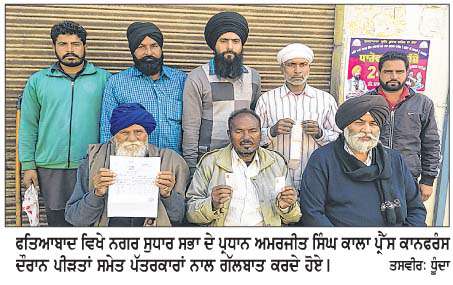 ਫਤਿਆਬਾਦ ਵਿਖੇ ਨਗਰ ਸੁਧਾਰ ਸਭਾ ਦੇ ਪ੍ਰਧਾਨ ਅਮਰਜੀਤ ਸਿੰਘ ਕਾਲਾ ਪ੍ਰੈੱਸ ਕਾਨਫਰੰਸ
ਦੌਰਾਨ ਪੀੜਤਾਂ ਸਮੇਤ ਪੱਤਰਕਾਰਾਂ ਨਾਲ ਗੱਲਬਾਤ ਕਰਦੇ ਹੋਏ। ਤਸਵੀਰ: ਧੂੰਦਾ